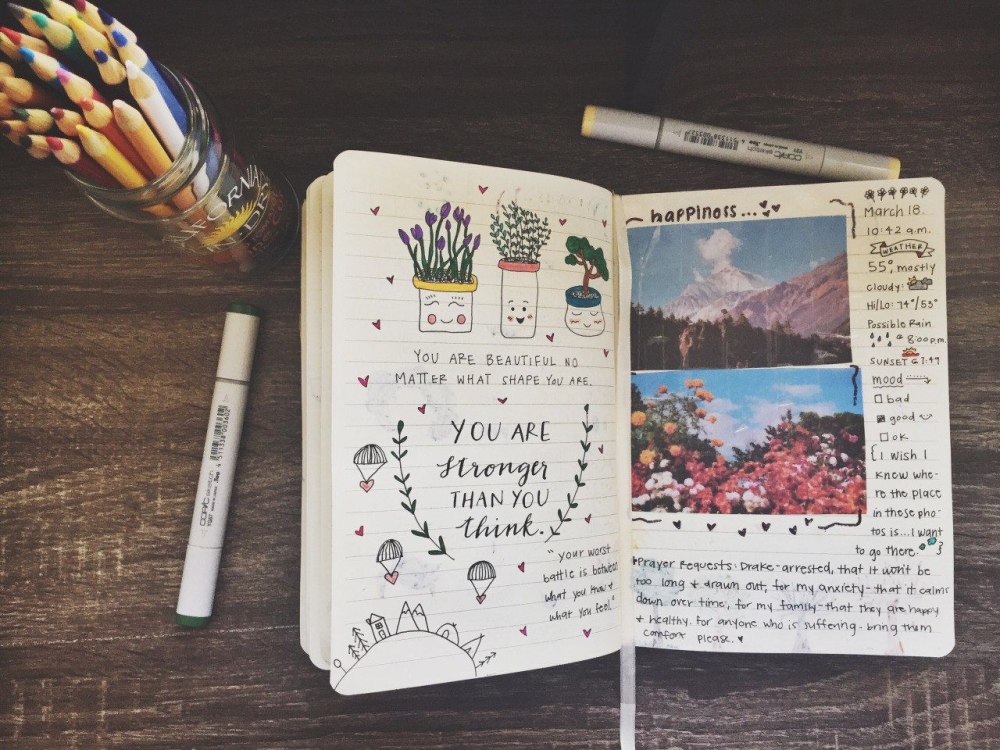 YOU ARE BEAUTIFUL NO
MATTER WHAT SHAPE YOU ARE.
YOU ARE
stronger
THAN YOU
think.
"your worst
battle is between
what you know +
what you feel."
happiness...
March 18.
10:42 a.m.
WEATHER
55°, mostly
cloudy:
Hi/Lo: 74°/53°
Possible Rain
@ 8:00 p.m.
SUNSET @ 7:49
mood
bad
good
ok
{I wish I
knew whe-
re the place
in these pho-
tos is...I want
to go there. }
Prayer Requests: Drake-arrested, that it won't be
too long + drawn out, for my anxiety-that it calms
down over time, for my family-that they are happy
+ healthy. for anyone who is suffering-bring them
comfort please.
COPIC sketch
4 511338 003602
COPIC sketch